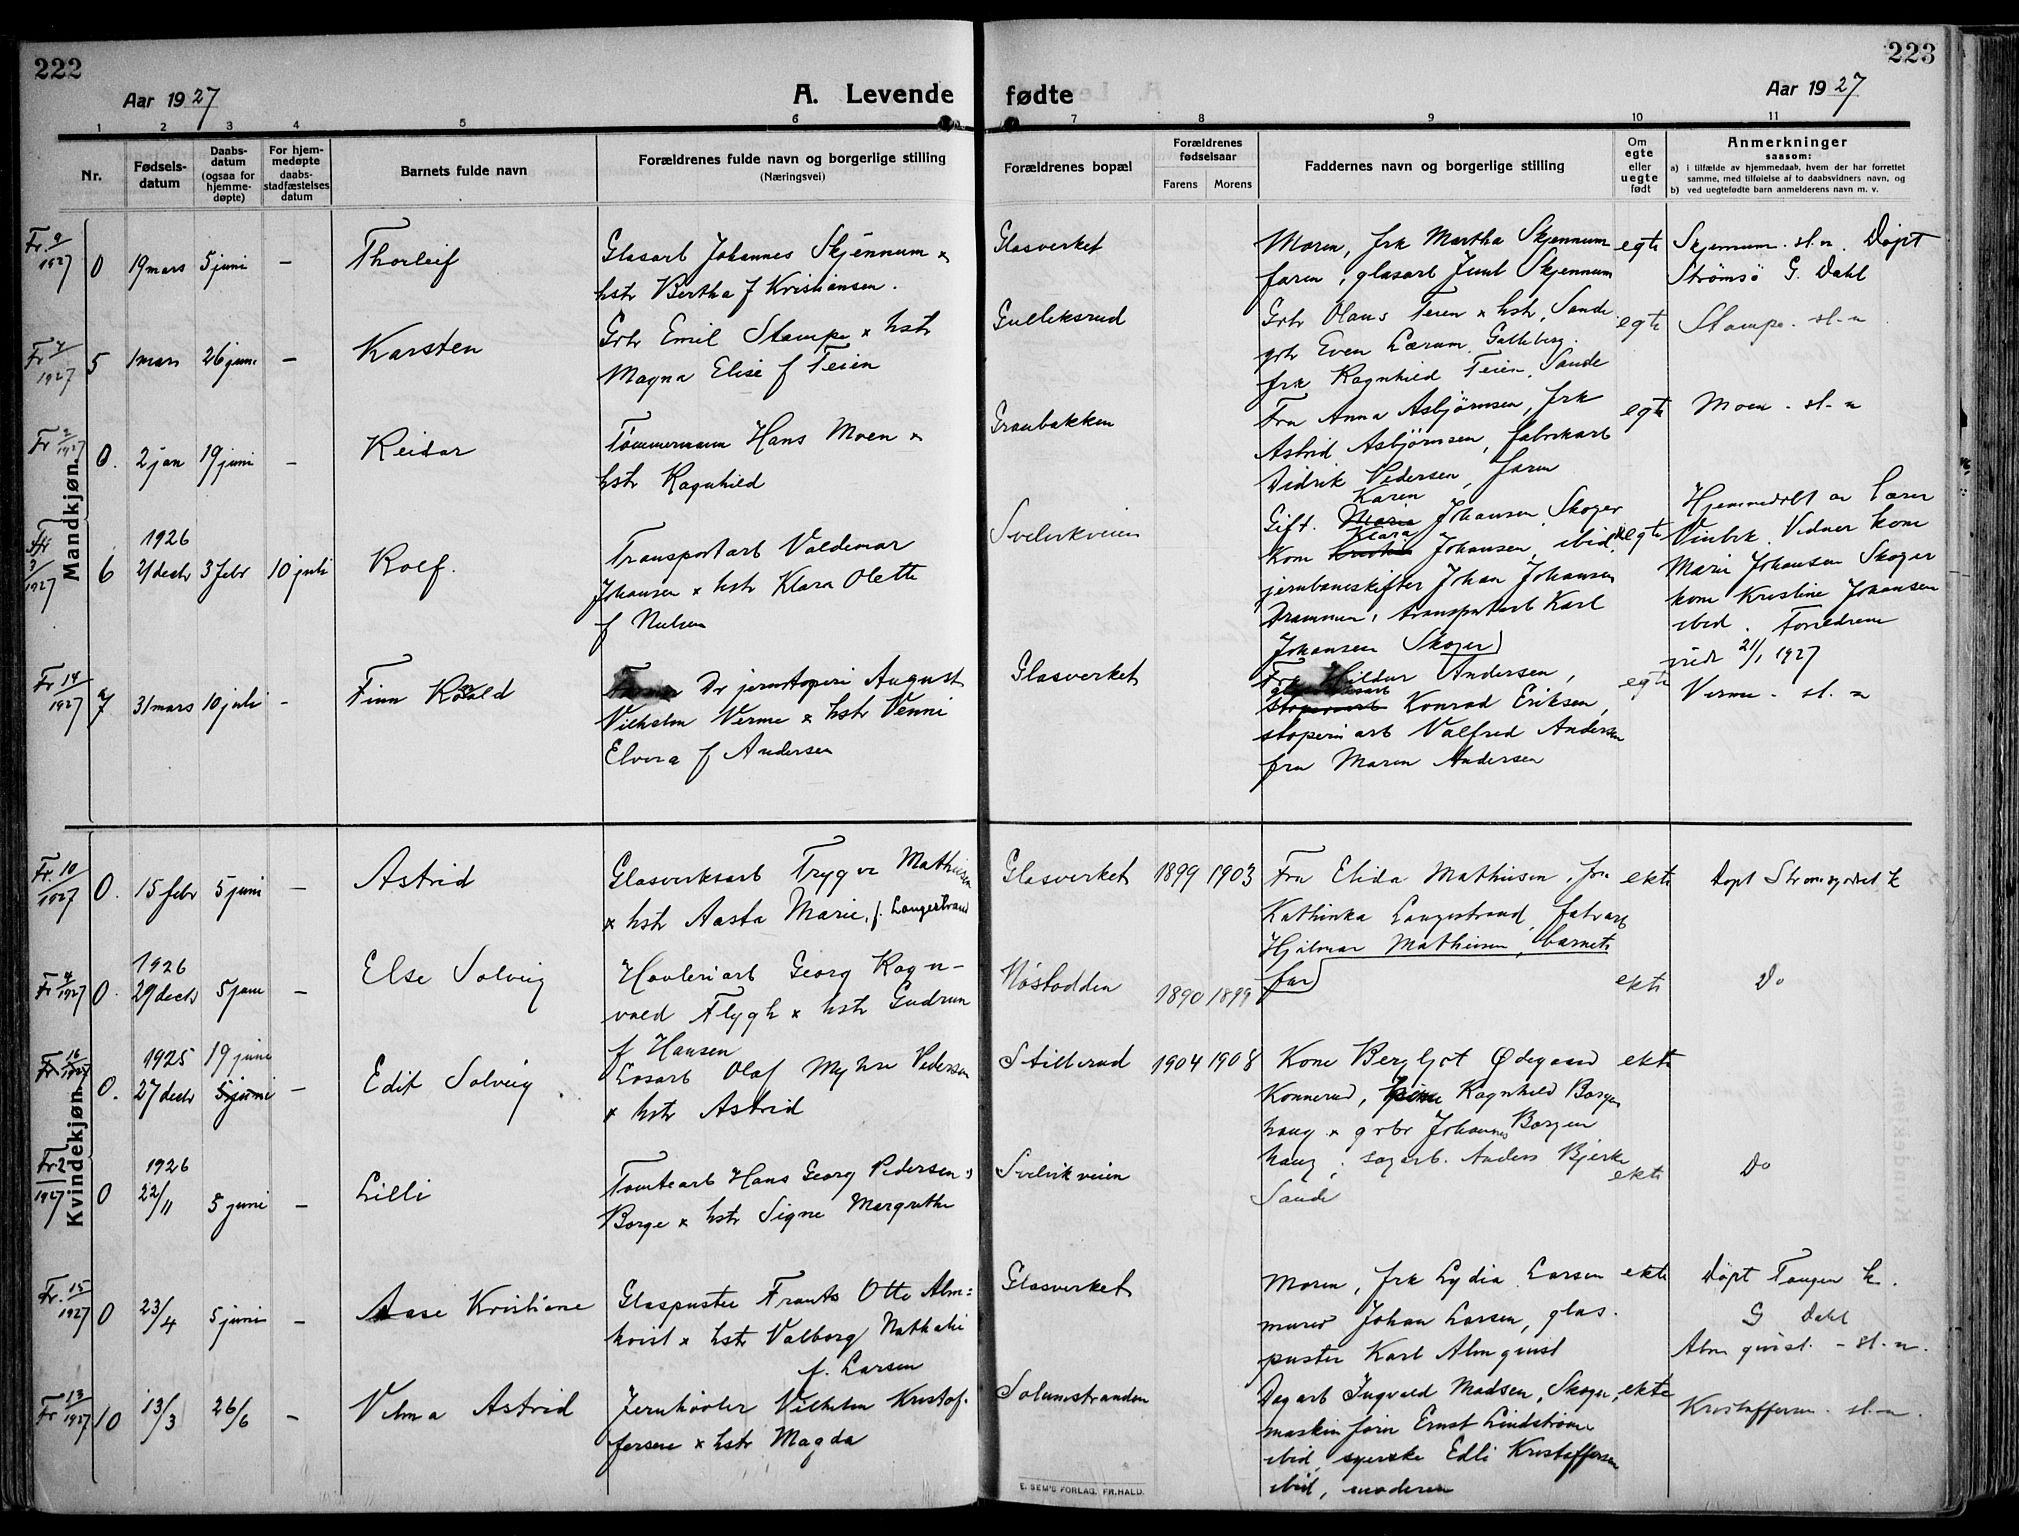 222
223
Aar 1927
A. Levende
fødte
Aar 1927
1 2 3 4 5 6 7 8 9 10 11
Nr.
Fødsels-
datum
Daabs-
datum
(ogsaa for
hjemme-
døpte)
For hjem-
medøpte
daabs-
stadfæstelses
datum
Barnets fulde navn
Forældrenes fulde navn og borgerlige stilling
(Næringsvei)
Forældrenes bopæl
Forældrenes
fødselsaar
Farens Morens
Faddernes navn og borgerlige stilling
Om
egte
eller
uegte
født
Anmerkninger
saasom:
a) i tilfælde av hjemmedaab, hvem der har forrettet
samme, med tilføielse af to daabsvidners navn, og
b) ved uegtefødte barn anmelderens navn m. v.
Mandkjøn.
Fr. 9/1927 0 19 mars 5 juni – Thorleif
Glasarb Johannes Skjønnum x
hstr Bertha f Kristiansen.
Glasverket
Moren, frk Martha Skjennum
faren, glasarb Juul Skjennum
egte
Skjennum. sl.n. Døpt
Strømsö G. Dahl
Fr 7/1927 5 1 mars 26 juni – Karsten
Grbr Emil Stampe x hstr
Magna Elise f Teien
Gulleksrud
Grbr Olaus Teien x hstr, Sande
grbr Even Lærum, Galleberg.
frk Ragnhild Teien, Sande
egte
Stampe. sl-n
Fr 2/1927 0. 2 jan 19 juni – Reidar
Tømmermann Hans Moen x
hstr Ragnhild
Granbakken
Fru Anna Asbjørnsen, frk
Astrid Asbjørnsen, fabrikarb
Didrik Pedersen, faren
egte
Moen. sl-n
Fr 3/1927 6 1926 21 decbr 3 febr 10 juli Rolf.
Transportarb Valdemar
Johansen x hstr Klara Olette
f Nielsen
Svelvikveien
Karen
Gift. Maria Johansen, Skoger
Klara
Kone Kristine Johansen, ibid.
jernbaneskifter Johan Johansen
Drammen, transportarb Karl
Johansen Skoger
egte
Hjemmedøbt av Lærer
Vinbk. Vidner kone
Marie Johansen Skoger
kone Kristine Johansen
ibid. Foreldrene
vidr 21/1 1927
Fr 14/1927 7 31 mars 10 juli – Finn Roald
Dr jernstøperi August
Vilhelm Verme x hstr Venni
Elvira f Andersen
Glasverket
Fru Hildur Andersen,
Konrad Eriksen,
støperiarb Valfred Andersen
fru Maren Andersen
egte
Verme. sl. n
Kvindekjøn.
Fr. 10/1927 0. 15 febr 5 juni – Astrid
Glasverksarb Trygve Mathiesen
x hstr Aasta Marie, f. Langestrand
Glasverket 1899 1903
Fru Elida Mathiesen, fru
Kathinka Langestrand, fabrarb
Hjalmar Mathiesen, barnets
far
ekte
Døpt Strømsgodset k
Fr 4/1927 0. 1926 29 decbr 5 juni – Else Solveig
Høvleriarb Georg Ragn-
vald Flygh x hstr Gudrun
f Hansen
Nøstodden 1890 1899
ekte
Do
Fr 16/1927 0. 1925 27 decbr 19 juni 5 juni – Edit Solveig
Løsarb Olaf Myhre Pedersen
x hstr Astrid
Stillerud 1904 1908
Kone Bergljot Ødegaard
Konnerud, Ragnhild Borgen
haug x grbr Johannes Borgen
haug, sagarb. Anders Bjerke
Sande
ekte
Fr 2/1927 0 1926 22/11 5 juni – Lilli
Tomtearb Hans Georg Pedersen
Borge x hstr Signe Margrethe
Svelvikveien
ekte
Do
Fr. 15/1927 0 23/4 5 juni – Aase Kristiane
Glaspuster Frants Otto Alm=
kvist x hstr Valborg Nathalie
f. Larsen
Glasverket
Moren, frk Lydia Larsen
murer Johan Larsen, glas.
puster Karl Almquist
ekte
Døpt Tangen k.
G Dahl
Almquist. – sl. n.
Fr 13/1927 10 13/3 26/6 – Velma Astrid
Jernhøvler Vilhelm Kristof-
fersen x hstr Magda
Solumstranden
Dagarb Ingvald Madsen, Skoger,
maskinform Ernst Lindstrøm
ibid, syerske Edli Kristoffersen
ibid, moderen
ekte
Kristoffersen. sl.-n.
E. SEM'S FORLAG, FR.HALD.